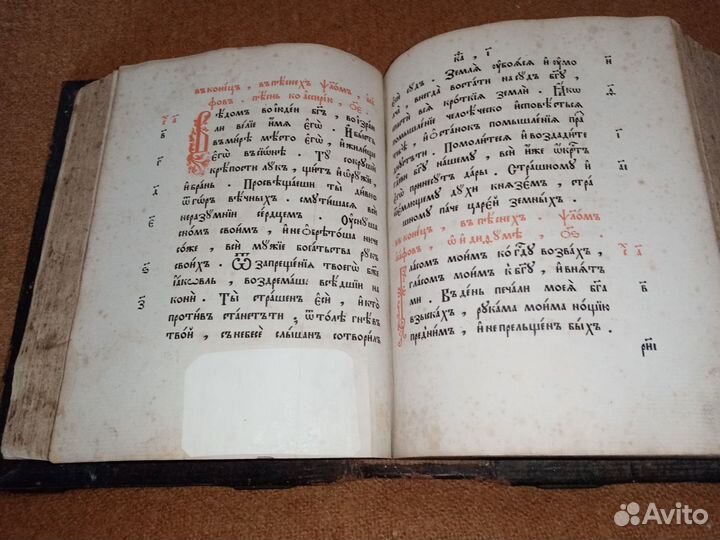 въ конец҄ъ , въ пѣснехъ ѱалѡмъ , а҆са́
фовъ . пѣснь ко а҆ссѵрїѧ , о҃е
Вѣдомъ во і҆ꙋдеи бг҃ъ , во і҆зраи
ли ве́лїе и҆́мѧ є҆гѡ̀ . И҆ бы́сть
въ ми́рѣ мѣ́сто є҆гѡ̀ , и҆ жили́ще
є҆гѡ̀ въ сїѡ́нѣ . Тꙋ̀ сокрꙋшѝ
крѣ́пости лꙋ́къ , щи́тъ и҆ ѻ҆рꙋ́жїе ,
и҆ бра́нь . Просвѣща́еши ты̀ ди́вно
ѿ го́ръ вѣ́чныхъ . смѧто́шасѧ всѝ
неразꙋ́мнїи се́рдцемъ . Оу҆снꙋ́ша
сно́мъ свои́мъ , и҆ не ѡ҆брѣто́ша ниче
со́же , всѝ мꙋ́жїе бога́тьства рꙋ́къ
свои́хъ . Ѿ запреще́нїѧ твоегѡ̀ бж҃е
і҆а́ковль , воздрема́ша всѣ́дшїи на
ко́ни . Ты̀ стра́шенъ є҆сѝ , и҆ кто̀
проти́въ ста́нетъ тѝ ; ѿто́лѣ гнѣ́въ
тво́й , съ небесѐ слы́шанъ сотвори́лъ
к҃а , і҃
є҆сѝ сꙋ́дъ . Землѧ̀ оу҆боѧ́сѧ и҆ оу҆мо
лчѐ , внегда̀ воста́ти на сꙋ́дъ бг҃ꙋ ,
спастѝ всѧ̀ кро́ткїѧ землѝ . Ꙗ҆́кѡ
помышле́нїе человѣ́ческо и҆сповѣ́стьсѧ
тѝ , и҆ ѡ҆ста́нокъ помышле́нїѧ пра́
зднꙋетъ тѝ . Помоли́тесѧ и҆ возда́дите
гдⷭ҇ви бг҃ꙋ на́шемꙋ , всѝ и҆̀же ѡ҆́кртⷭ҇ъ
є҆гѡ̀ принесꙋ́тъ да́ры . Стра́шномꙋ и҆
ѿе́млющемꙋ дꙋ́хи кнѧзе́мъ , стра́
шномꙋ па́че царе́й земны́хъ .
въ коне́цъ , въ пѣ́снехъ . ѱало́мъ
а҆са́фовъ , ѡ҆ и҆диѳꙋ́мѣ , о҃ѕ
Гла́сомъ мои́мъ ко гдⷭ҇ꙋ воззва́хъ ,
гла́сомъ мои́мъ къ бг҃ꙋ , и҆ внѧ́тъ
мѝ . В де́нь печа́ли моеѧ̀ бг҃а
взыска́хъ , рꙋка́ма мои́ма но́щїю
пре́днимъ , и҆ не прельще́нъ бы́хъ .
рн҃і
Avito